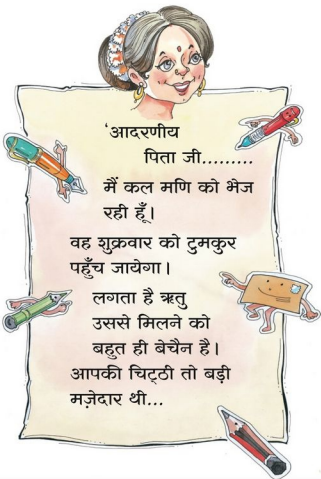 ‘आदरणीय
पिता जी.........
मैं कल मणि को भेज
रही हूँ।
वह शुक्रवार को टुमकुर
पहुँच जायेगा।
लगता है ऋतु
उससे मिलने को
बहुत ही बेचैन है।
आपकी चिट्ठी तो बड़ी
मज़ेदार थी...